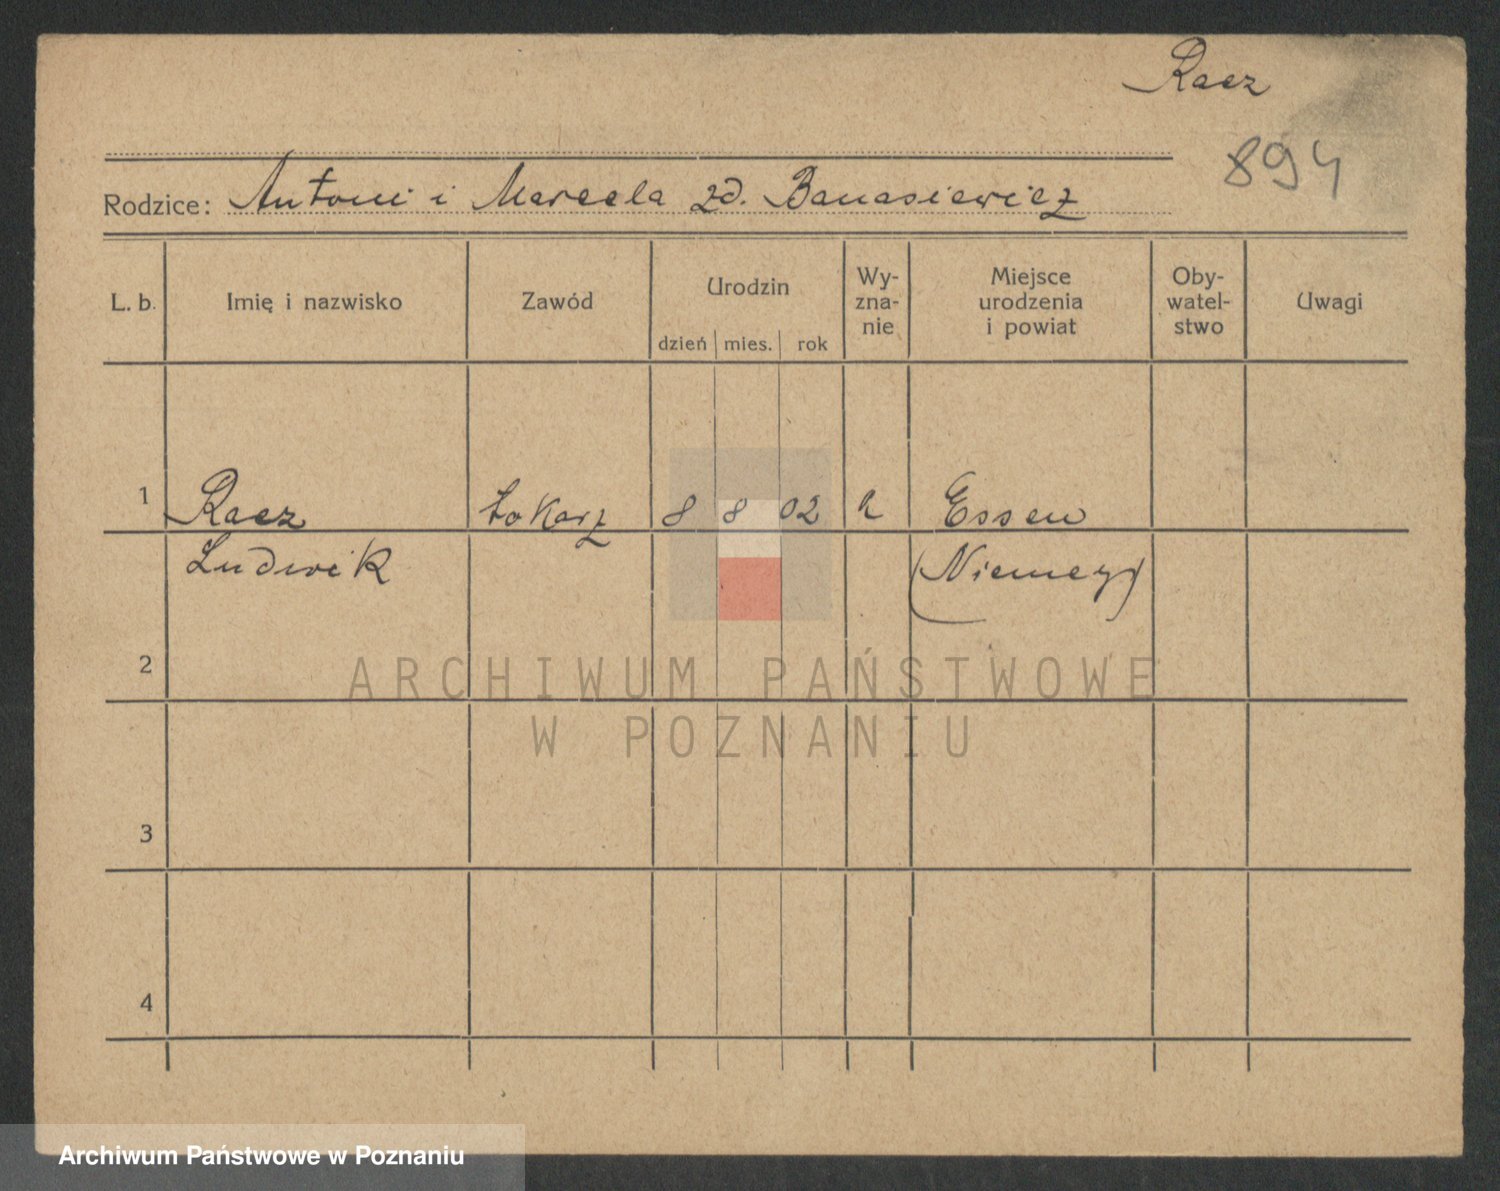 Racz
894
Rodzice: Antoni i Marcela zd. Banasiewicz
L. b. Imię i nazwisko Zawód Urodzin Wy-zna-nie Miejsce urodzenia i powiat Oby-watel-stwo Uwagi
dzień mies. rok
1 Racz Tokarz 8 8 02 Essen
Ludwik (Niemcy)
2
ARCHIWUM PAŃSTWOWE
W POZNANIU
3
4
Archiwum Państwowe w Poznaniu